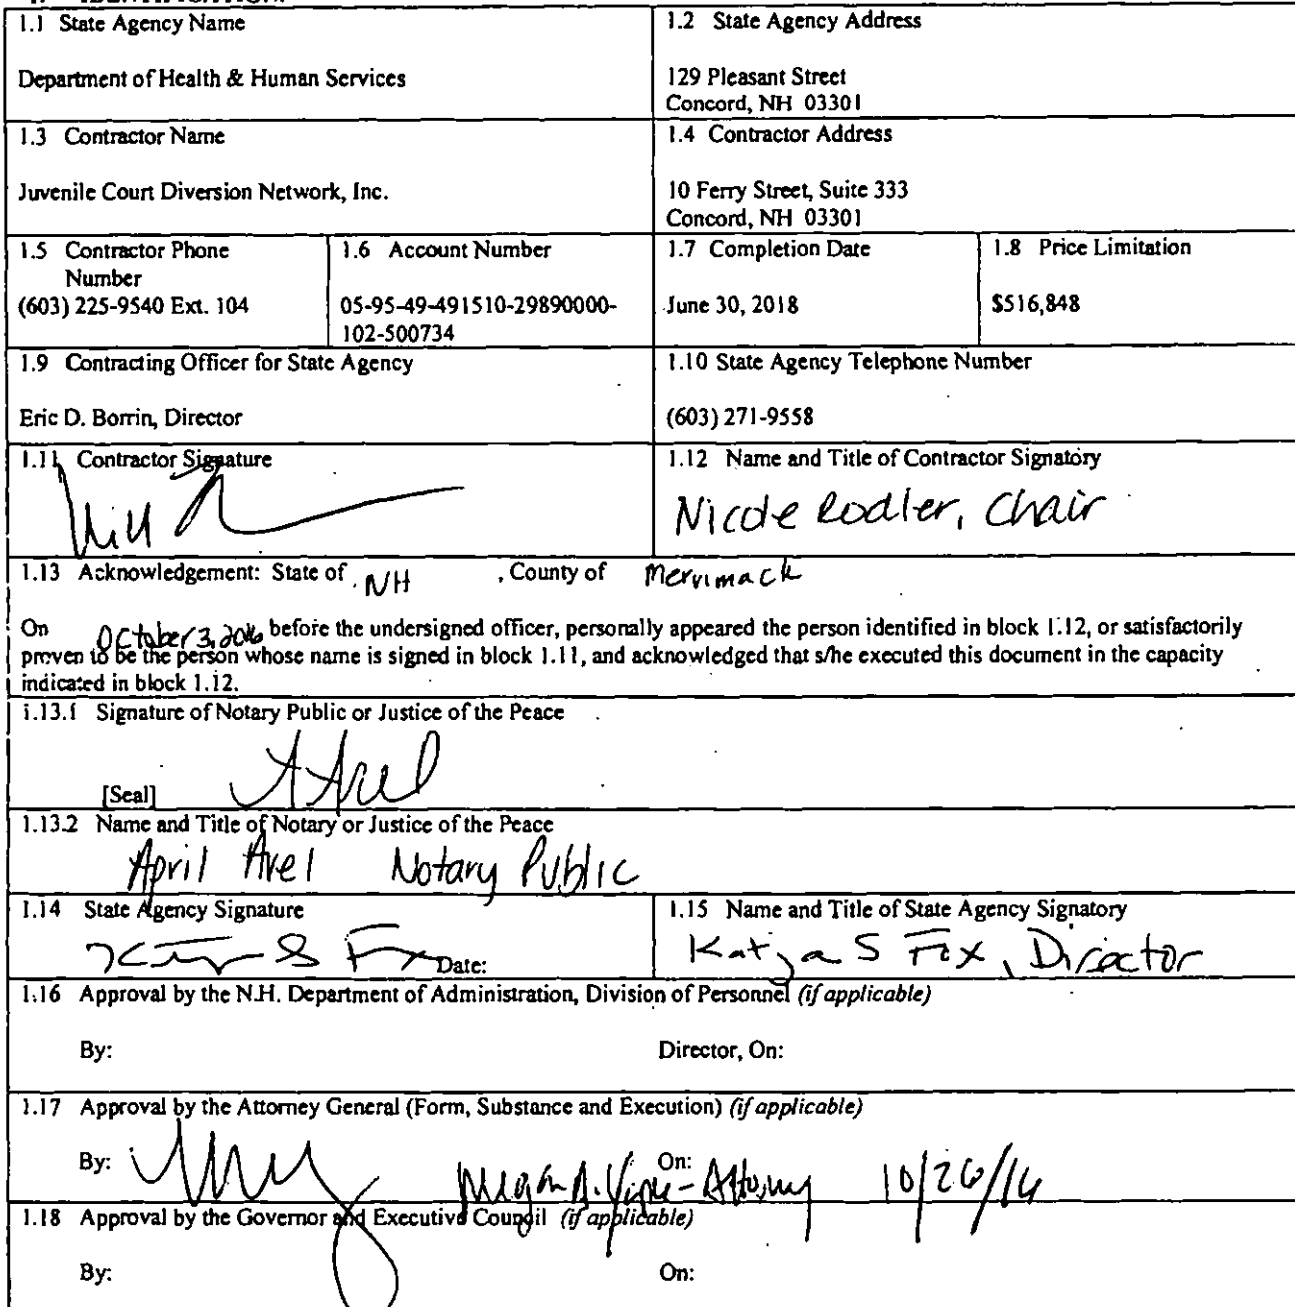 1.1 State Agency Name
1.2 State Agency Address
Department of Health & Human Services
129 Pleasant Street
Concord, NH 03301
1.3 Contractor Name
1.4 Contractor Address
Juvenile Court Diversion Network, Inc.
10 Ferry Street, Suite 333
Concord, NH 03301
1.5 Contractor Phone
Number
(603) 225-9540 Ext. 104
1.6 Account Number
05-95-49-491510-29890000-
102-500734
1.7 Completion Date
June 30, 2018
1.8 Price Limitation
$516,848
1.9 Contracting Officer for State Agency
Eric D. Borrin, Director
1.10 State Agency Telephone Number
(603) 271-9558
1.11 Contractor Signature
1.12 Name and Title of Contractor Signatory
Nicole Rodler, Chair
1.13 Acknowledgement: State of NH , County of Merrimack
On October 3, 2016 before the undersigned officer, personally appeared the person identified in block 1.12, or satisfactorily
proven to be the person whose name is signed in block 1.11, and acknowledged that s/he executed this document in the capacity
indicated in block 1.12.
1.13.1 Signature of Notary Public or Justice of the Peace
[Seal]
1.13.2 Name and Title of Notary or Justice of the Peace
April Notary Public
1.14 State Agency Signature
Date:
1.15 Name and Title of State Agency Signatory
Katja S Fox, Director
1.16 Approval by the N.H. Department of Administration, Division of Personnel (if applicable)
By: Director, On:
1.17 Approval by the Attorney General (Form, Substance and Execution) (if applicable)
By: On: Megan A. - Attorney 10/26/16
1.18 Approval by the Governor and Executive Council (if applicable)
By: On: